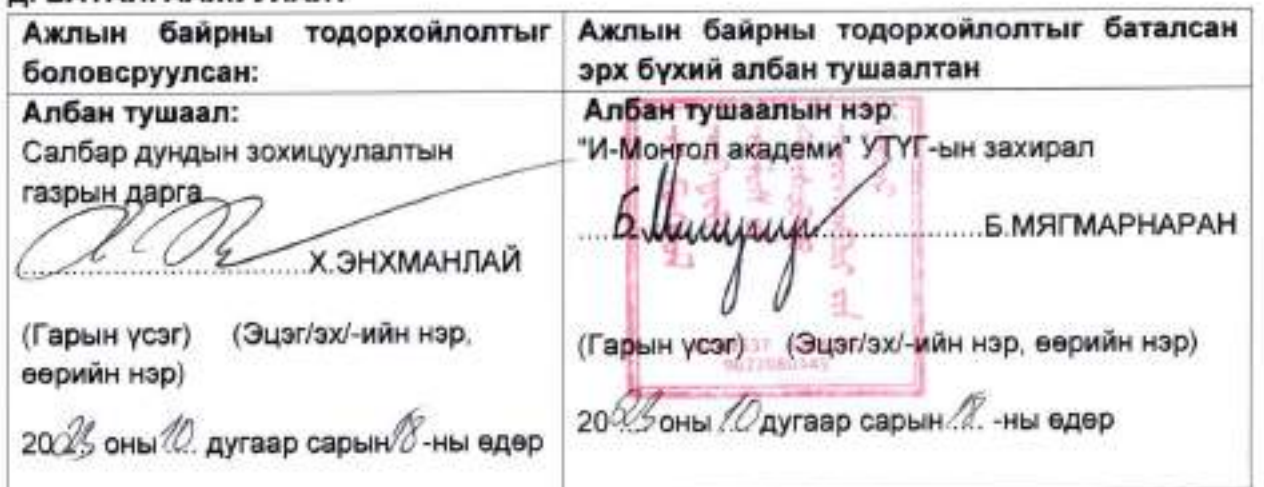 Ажлын байрны тодорхойлолтыг
боловсруулсан:
Ажлын байрны тодорхойлолтыг баталсан
эрх бүхий албан тушаалтан
Албан тушаал:
Салбар дундын зохицуулалтын
газрын дарга
Х.ЭНХМАНЛАЙ
(Гарын үсэг) (Эцэг/эх/-ийн нэр,
өөрийн нэр)
2023 оны 10. дугаар сарын 18 -ны өдөр
Албан тушаалын нэр:
"И-Монгол академи" УТҮГ-ын захирал
Б.МЯГМАРНАРАН
(Гарын үсэг) (Эцэг/эх/-ийн нэр, өөрийн нэр)
2023 оны 10 дугаар сарын 18. -ны өдөр